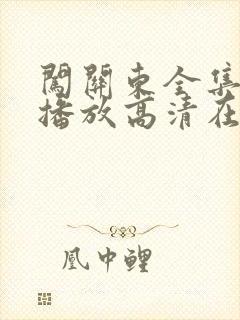 闖關東全集
播放高清在
凰中鯉